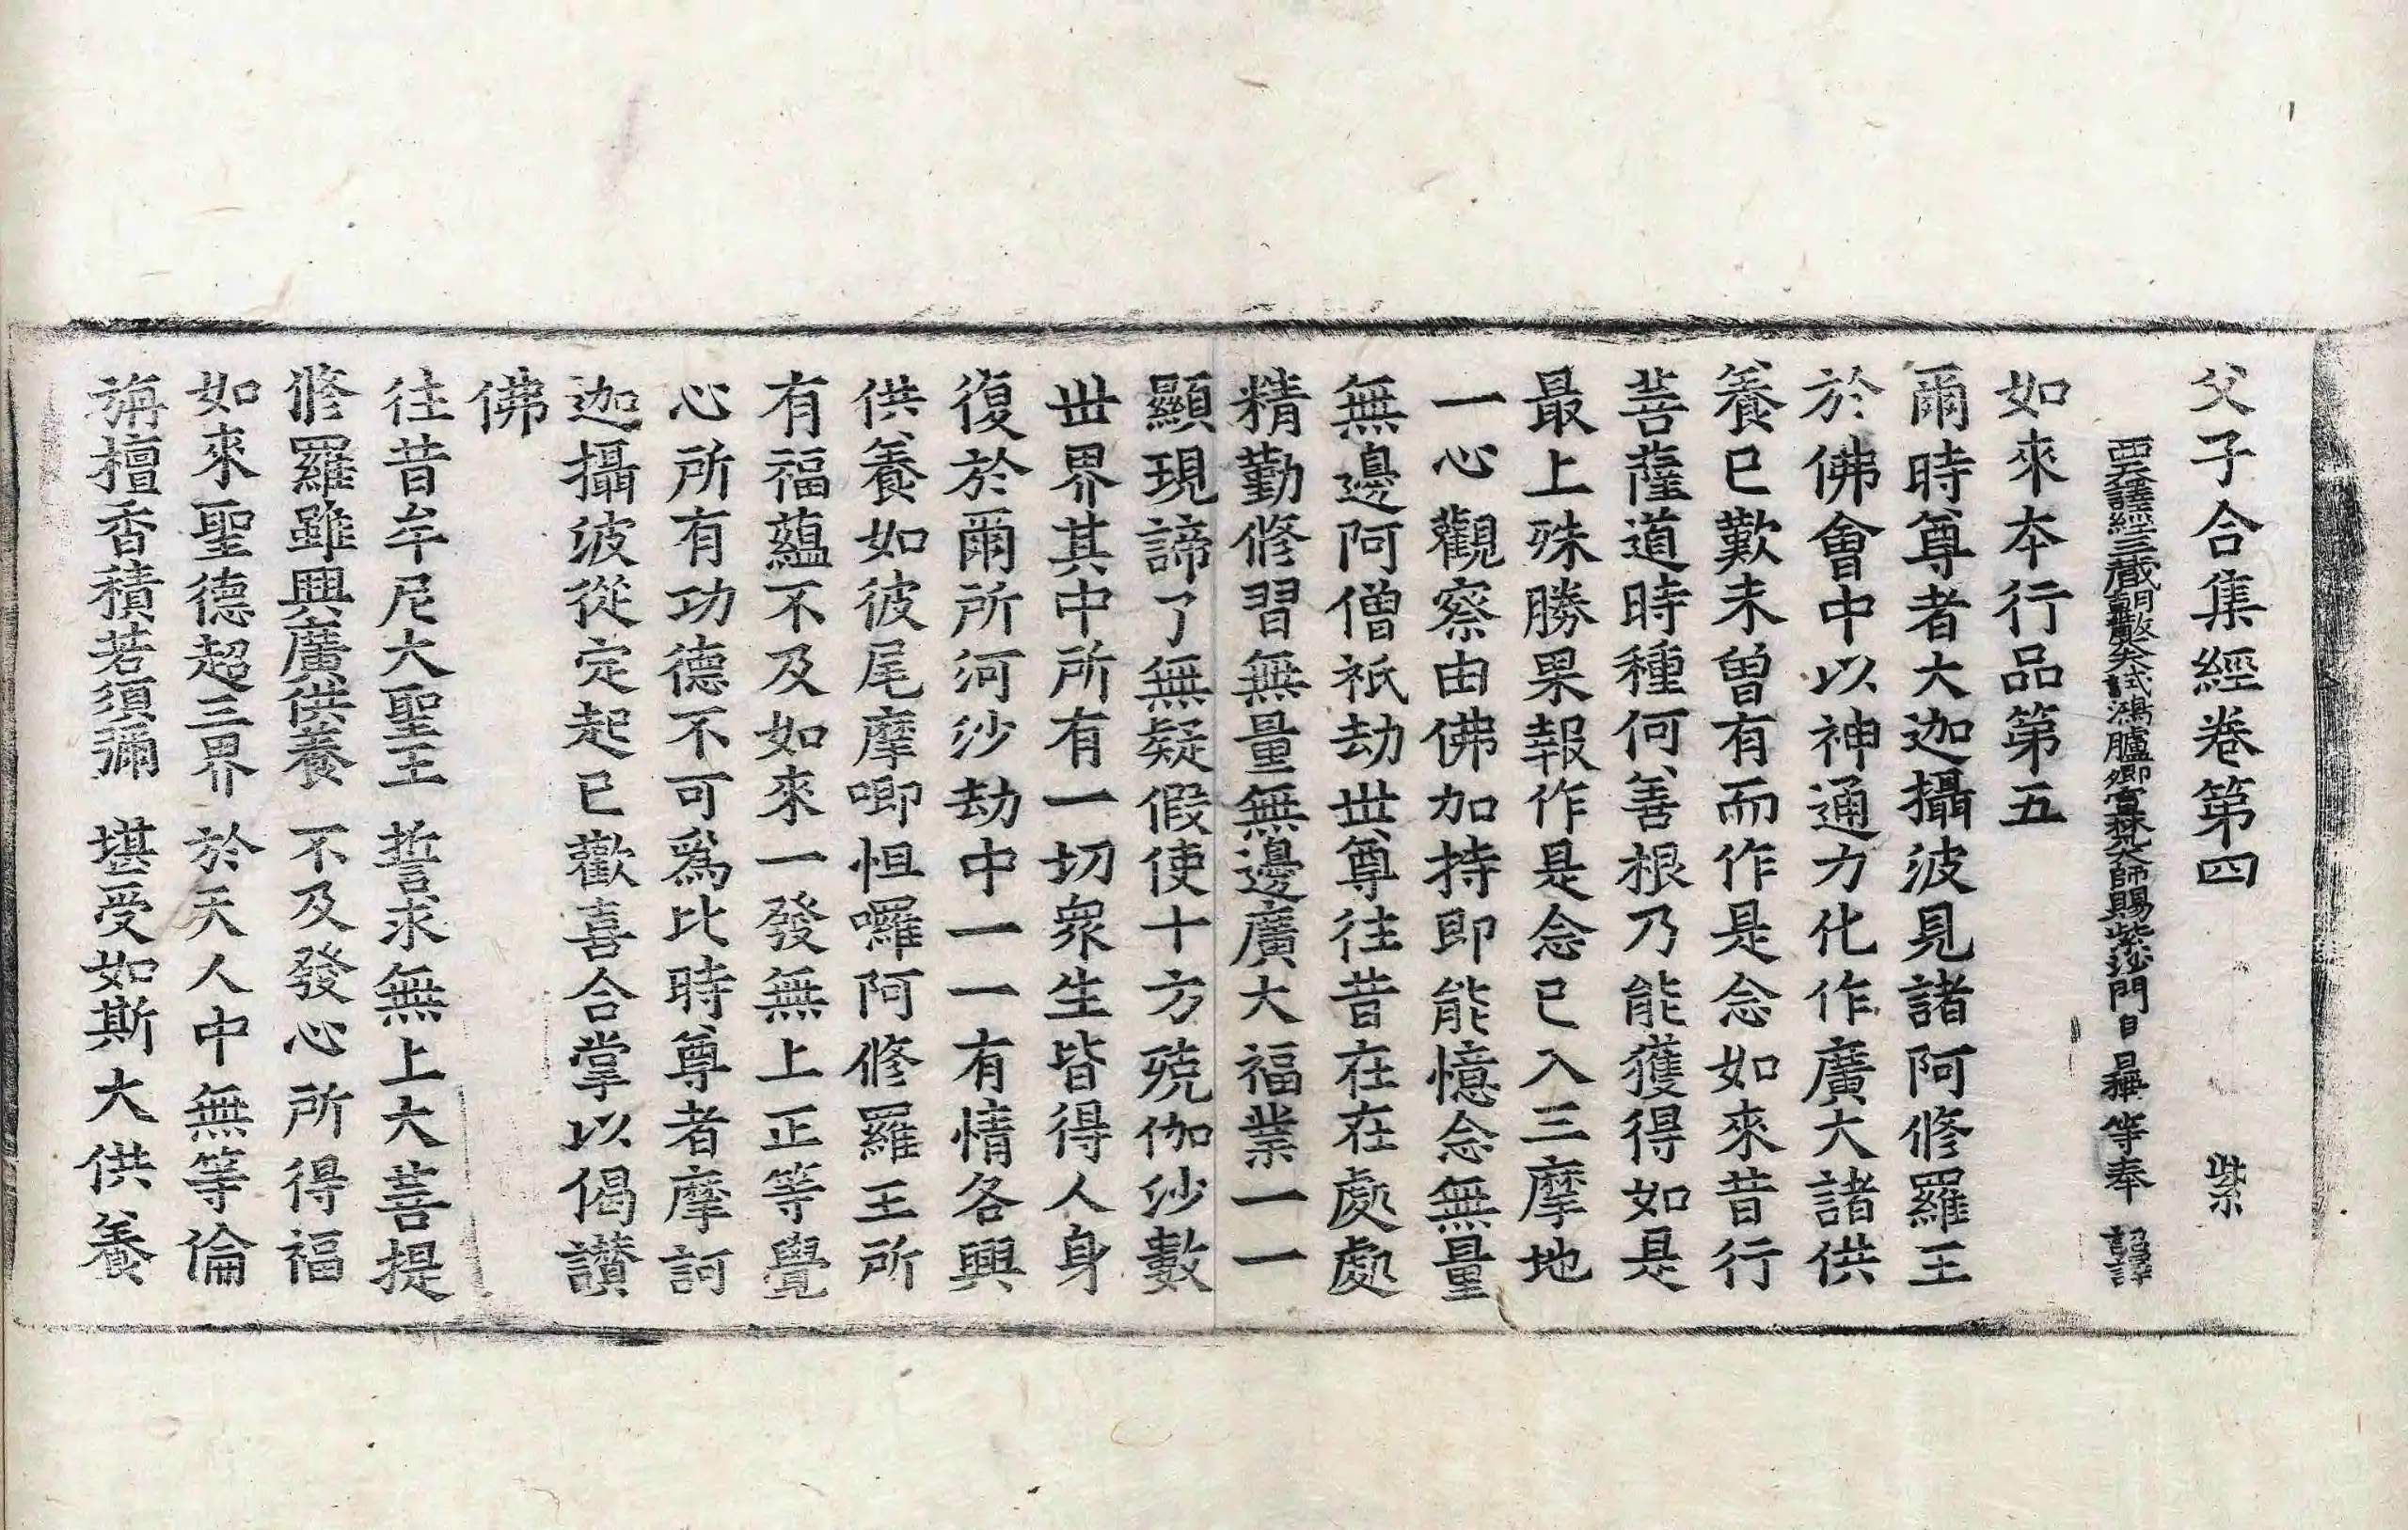 父子合集經卷第四　紫
西天譯經三藏朝散大夫試鴻臚卿宣梵大師賜紫沙門臣日稱等奉　詔譯
如來本行品第五
爾時尊者大迦攝波見諸阿修羅王
於佛會中以神通力化作廣大諸供
養已歎未曾有而作是念如來昔行
菩薩道時種何善根乃能獲得如是
最上殊勝果報作是念已入三摩地
一心觀察由佛加持即能憶念無量
無邊阿僧祇劫世尊往昔在在處處
精勤修習無量無邊廣大福業一一
顯現諦了無疑假使十方殑伽沙數
世界其中所有一切眾生皆得人身
復於爾所河沙劫中一一有情各興
供養如彼尾摩唧怛囉阿修羅王所
有福蘊不及如來一發無上正等覺
心所有功德不可爲比時尊者摩訶
迦攝波從定起已歡喜合掌以偈讚
佛
往昔牟尼大聖王　誓求無上大菩提
修羅雖興廣供養　不及發心所得福
如來聖德超三界　於天人中無等倫
旃檀香積若須彌　堪受如斯大供養